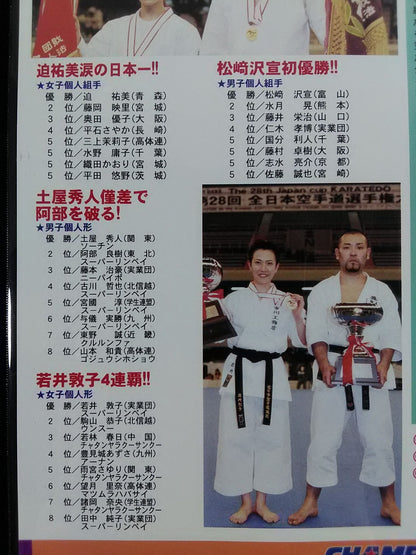 迫祐美涙の日本一!!
★女子個人組手
優　勝／迫　　祐美(青　森)
2　位／藤岡　映里(宮　城)
3　位／奥田　優子(大　阪)
4　位／平石さやか(長　崎)
5　位／三上茉莉子(高体連)
5　位／水野　庸子(千　葉)
5　位／織田かおり(宮　城)
5　位／平田　悠野(茨　城)
松﨑沢宣初優勝!!
★男子個人組手
優　勝／松﨑　沢宣(富　山)
2　位／水月　　晃(熊　本)
3　位／藤井　栄治(山　口)
4　位／仁木　孝博(実業団)
5　位／国分　利人(千　葉)
5　位／藤村　卓樹(大　阪)
5　位／志水　亮介(京　都)
5　位／佐藤　誠也(宮　崎)
土屋秀人僅差で
阿部を破る!
★男子個人形
優　勝／土屋　秀人(関　東)
ソーチン
2　位／阿部　良樹(東　北)
スーパーリンペイ
3　位／藤本　治豪(実業団)
ニーパイポ
4　位／古川　哲也(北信越)
スーパーリンペイ
5　位／宮國　　淳(学生連盟)
スーパーリンペイ
6　位／与儀　実勝(九　州)
スーパーリンペイ
7　位／東野　　誠(近　畿)
クルルンファ
8　位／山本　和貴(高体連)
ゴジュウシホショウ
若井敦子4連覇!!
★女子個人形
優　勝／若井　敦子(実業団)
スーパーリンペイ
2　位／駒山　恭子(北信越)
ウンスー
3　位／若林　春日(中　国)
チャタンヤラクーサンクー
4　位／豊見城あずさ(九州)
アーナン
5　位／雨宮さゆり(関　東)
チャタンヤラクーサンクー
6　位／望月　里奈(高体連)
マツムラハバサイ
7　位／諸岡　奈央(学生連盟)
チャタンヤラクーサンクー
8　位／田中　純子(実業団)
スーパーリンペイ
The 28th Japan cup KARATEDO
第28回 全日本空手道選手権大